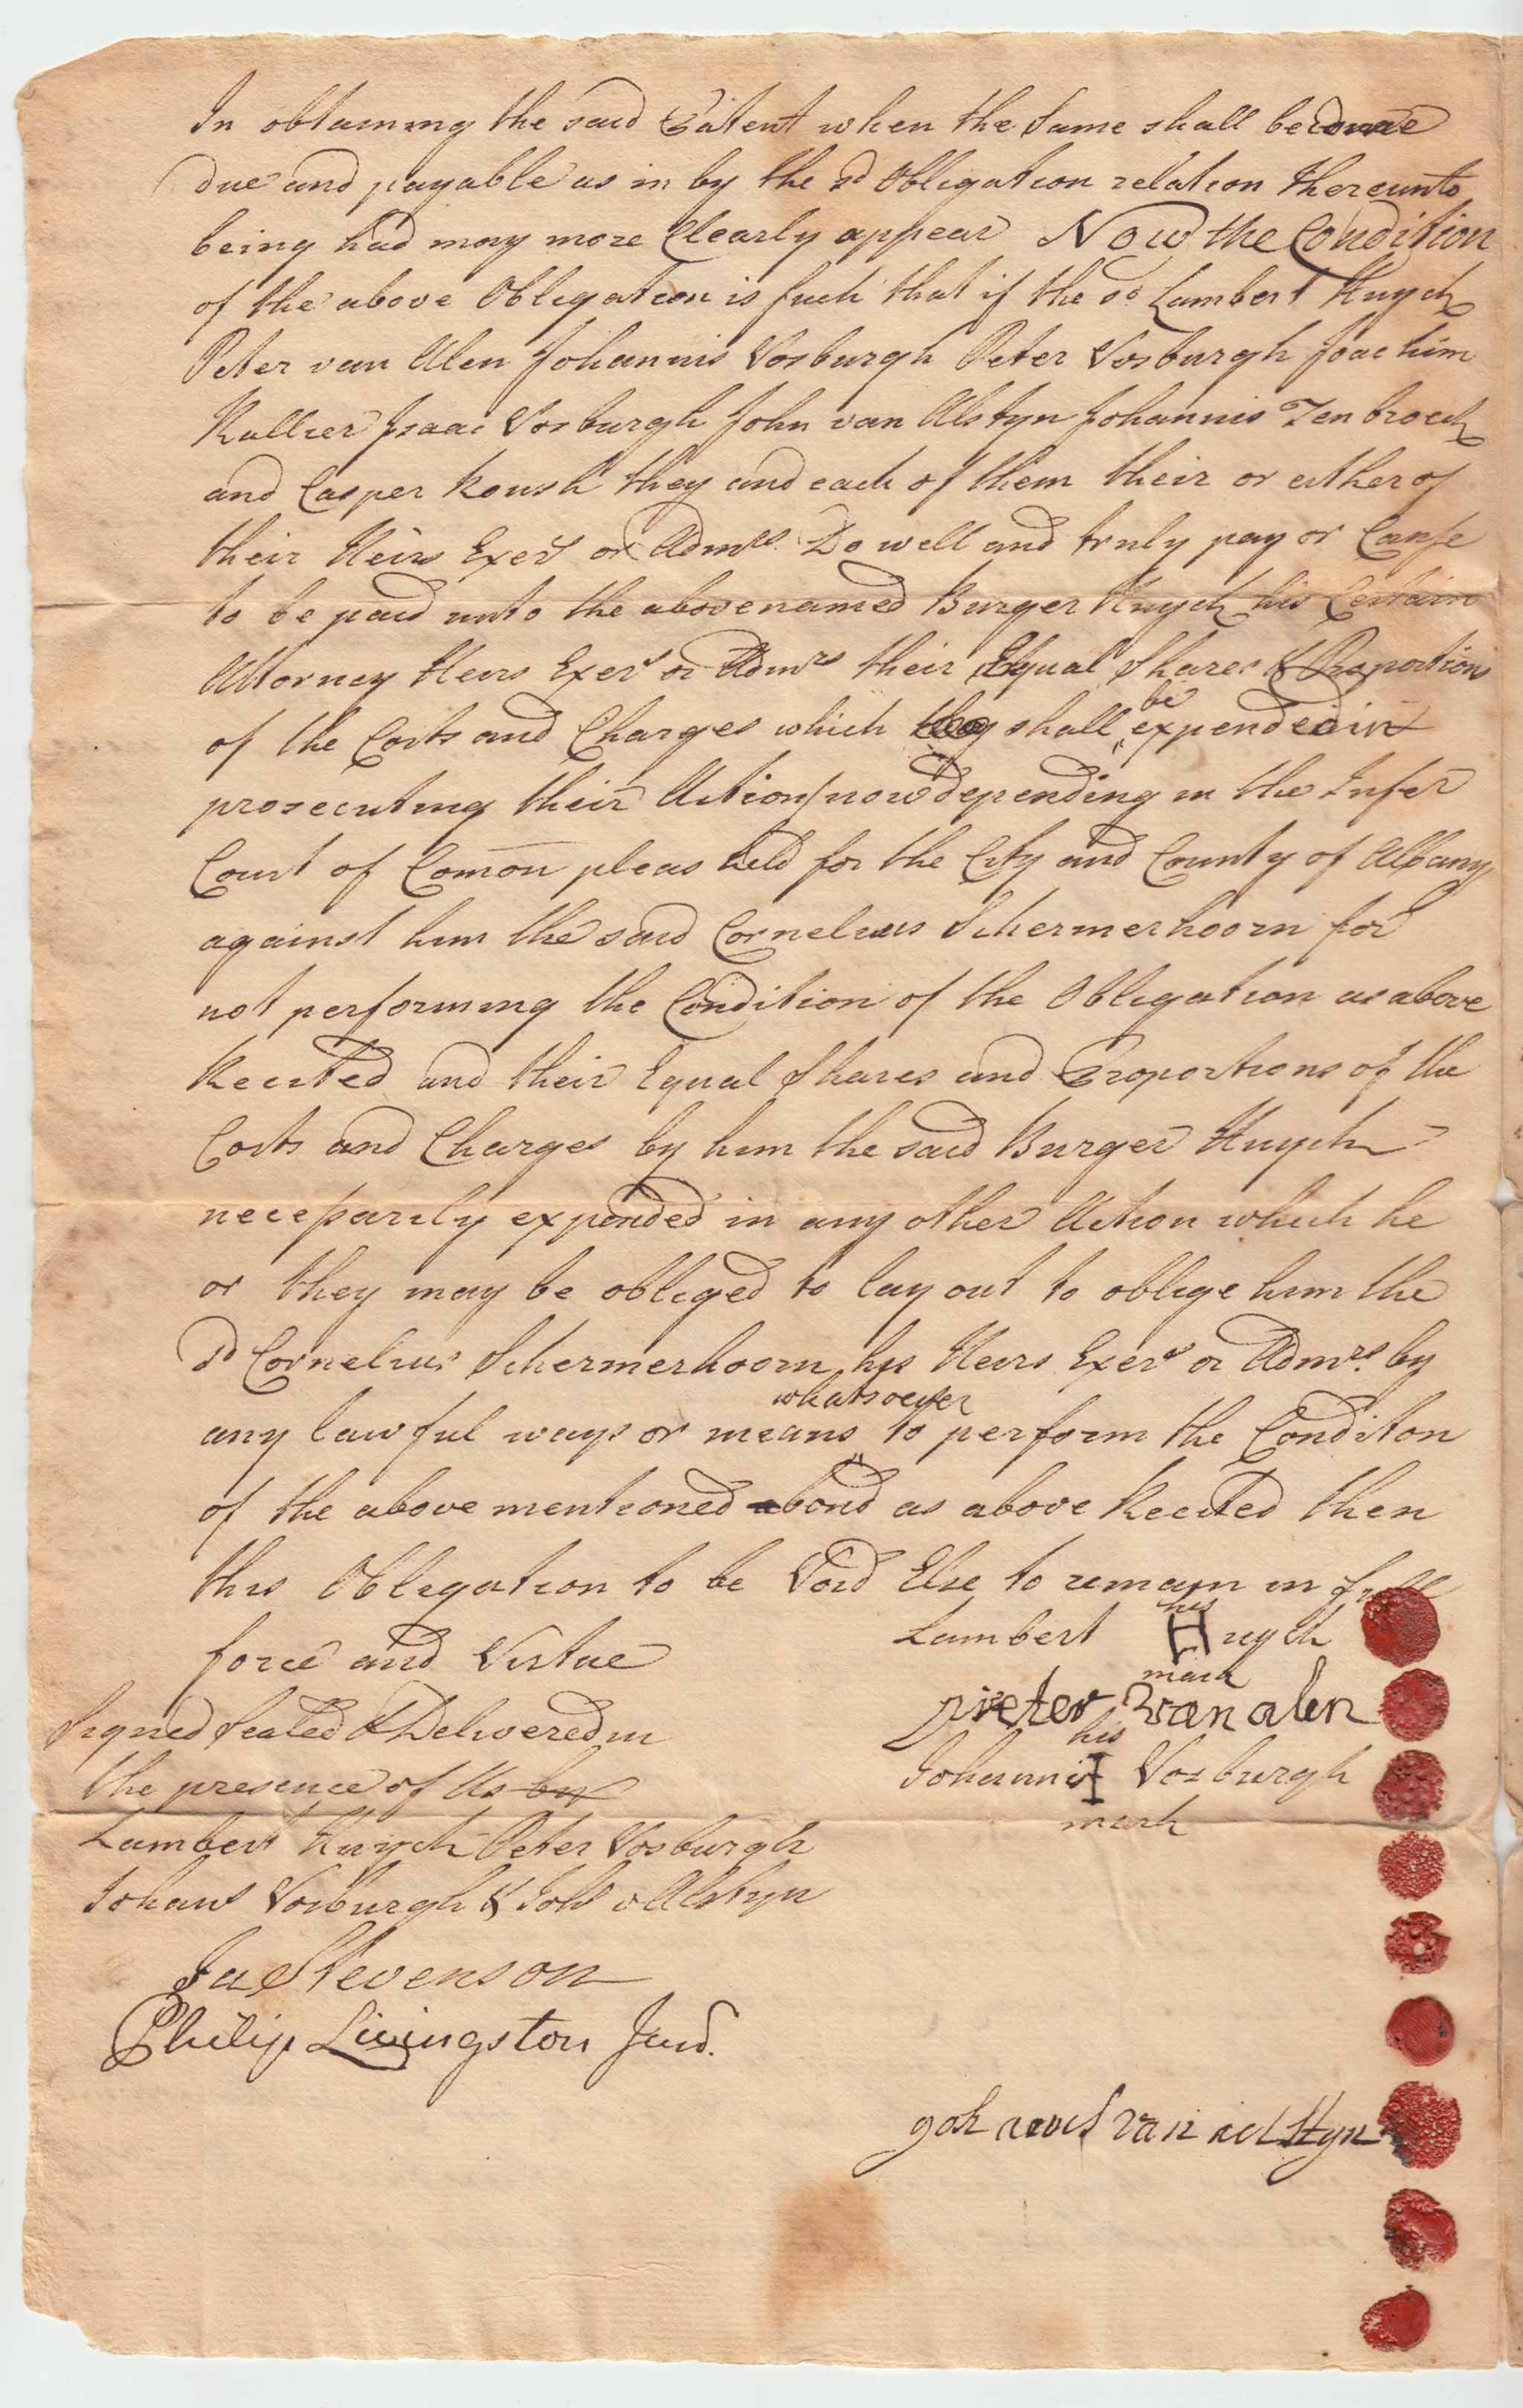 In obtaining the said Patent when the Same shall become
due and payable as in by the sd Obligation relation thereunto
being had may more Clearly appear Now the Condition
of the above Obligation is such that if the sd Lambert Huych
Peter van Alen Johannis Vosburgh Peter Vosburgh Joachim
Kallier Isaac Vosburgh John van Alstyn Johannis Tenbroeck
and Casper Roush they and each of them their or either of
their Heirs Exers or Admrs Do well and truly pay or Cause
to be paid unto the abovenamed Burger Huych his Certain
Attorney Heirs Exers or Admrs their Equal Shares & Proportions
of the Costs and Charges which shall be expended in
prosecuting their Action now depending in the Infer
Court of Comon pleas held for the City and County of Albany
against him the said Cornelius Schermerhoorn for
not performing the Condition of the Obligation as above
Recited and their Equal Shares and Proportions of the
Costs and Charges by him the said Burger Huych
necessarily expended in any other Action which he
or they may be obliged to lay out to oblige him the
sd Cornelius Schermerhoorn his Heirs Exers or Admrs by
any lawful ways or means whatsoever to perform the Conditon
of the above mentioned bond as above Recited then
this Obligation to be Void Else to remain in full
force and Virtue
Signed Sealed & Delivered in
the presence of Us by
Lambert Huych Peter Vosburgh
Johans Vosburgh & Joh v Alstyn
Ja Stevenson
Philip Livingston Junr.
his
Lambert H uych
mark
pieter van alen
his
Johannis I Vosburgh
mark
van alstyn